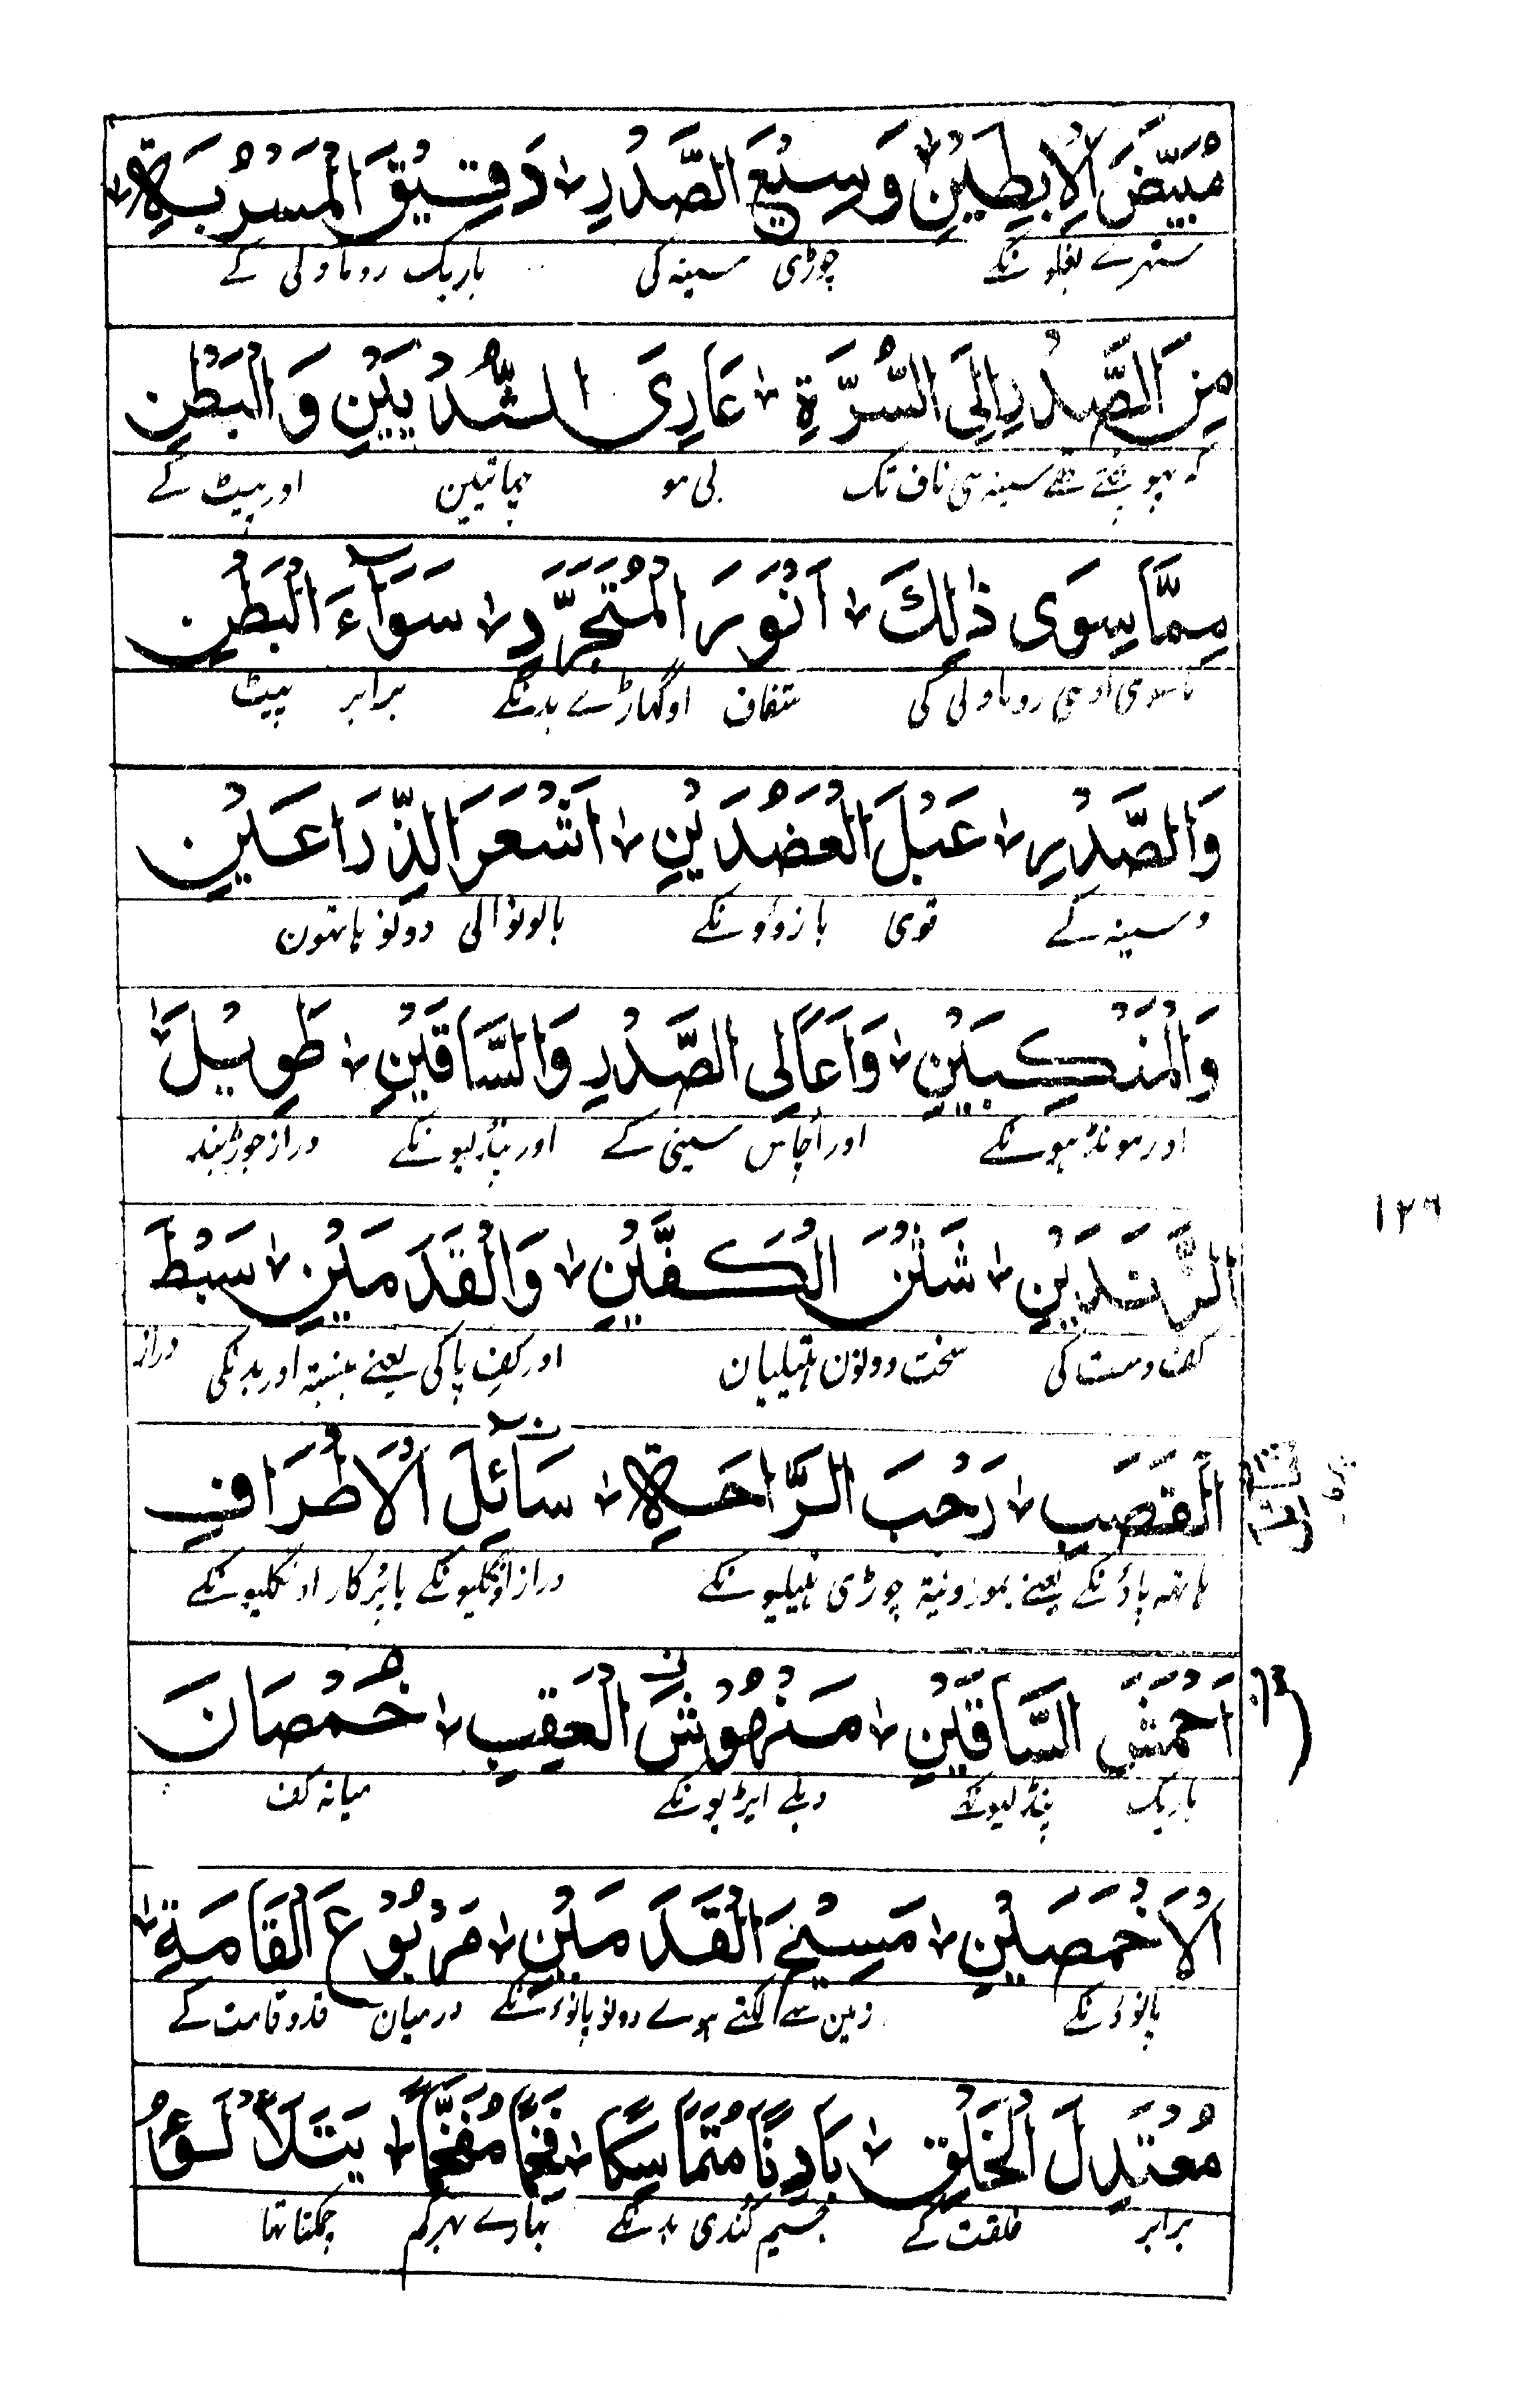 مُبَيَّضَ الْاِبِطَيْنِ وَسِيْعَ الصَّدْرِ دَقِيْقَ الْمَسْرُبَةِ
ستھرے بغلونکے چوڑی سینہ کی باریک روماولی کے
مِنَ الصَّدْرِ اِلَى السُّرَّةِ عَارِىَ الثُّدْيَيْنِ وَالْبَطْنِ
سینہ سی ناف تک بی مو چھاتیین اور پیٹ کے
مِمَّا سِوَى ذٰلِكَ اَنْوَرَ الْمُتَجَرَّدِ سَوَآءَ الْبَطْنِ
روماولی کی شفاف اوگھاڑے بدنکے برابر پیٹ
وَالصَّدْرِ عَبْلَ الْعَضُدَيْنِ اَشْعَرَ الذِّرَاعَيْنِ
و سینہ کے قوی بازوونکے بالونوالی دونو ہاتھون
وَالْمَنْكِبَيْنِ وَاَعَالِى الصَّدْرِ وَالسَّاقَيْنِ طَوِيْلَ
اور مونڈہیونکے اور اُچاس سینی کے اور پنڈلیونکے دراز جوڑبند
الزَّنْدَيْنِ شَثْنَ الْكَفَّيْنِ وَالْقَدَمَيْنِ سَبْطَ
کف دست کی سخت دونون ہتیلیان اور کفِ پا کی یعنے بنسبتہ اور بدنکی دراز
الْقَصَبِ رَحْبَ الرَّاحَةِ سَآئِلَ الْاَطْرَافِ
ہاتھ پاؤنکے یعنے بموزونیۃ چوڑی ہتیلیونکے دراز اونگلیونکے یا پُرکار اونگلیونکے
اَحْمَشَ السَّاقَيْنِ مَنْهُوْشَ الْعَقِبِ خُمْصَانَ
باریک پنڈلیونکے دبلے ایڑیونکے میانہ کف
الْاَخْمَصَيْنِ مَسِيْحَ الْقَدَمَيْنِ مَرْبُوْعَ الْقَامَةِ
پانوؤنکے زمین سے لگتے ہوے دونو پانوؤنکے درمیان قد و قامت کے
مُعْتَدِلَ الْخَلْقِ بَادِنًا مُتَمَاسِكًا فَخْمًا مُفَخَّمًا يَتَلَأْلَؤُ
برابر خلقت کے جسیم گندی بدنکے بہارے بہرکم چمکتا تہا
١٢٦